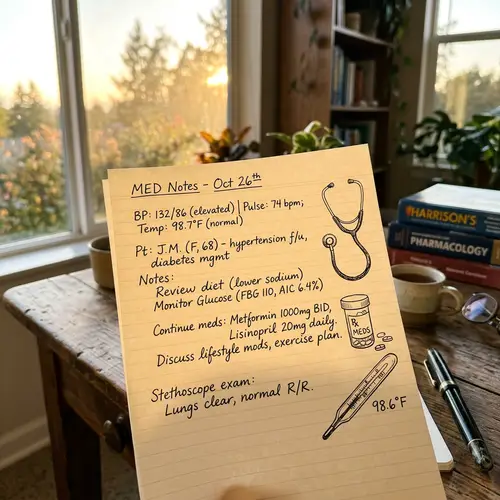 MED Notes - Oct 26th
BP: 132/86 (elevated) | Pulse: 74 bpm;
Temp: 98.7°F (normal)
Pt: J.M. (F, 68) - hypertension f/u,
diabetes mgmt
Notes:
Review diet (lower sodium)
Monitor Glucose (FBG 110, A1C 6.4%)
Continue meds: Metformin 1000mg BID,
Lisinopril 20mg daily.
Discuss lifestyle mods, exercise plan.
Stethoscope exam:
Lungs clear, normal R/R.
Rx
MEDS
98.6°F
HARRISON'S
PHARMACOLOGY